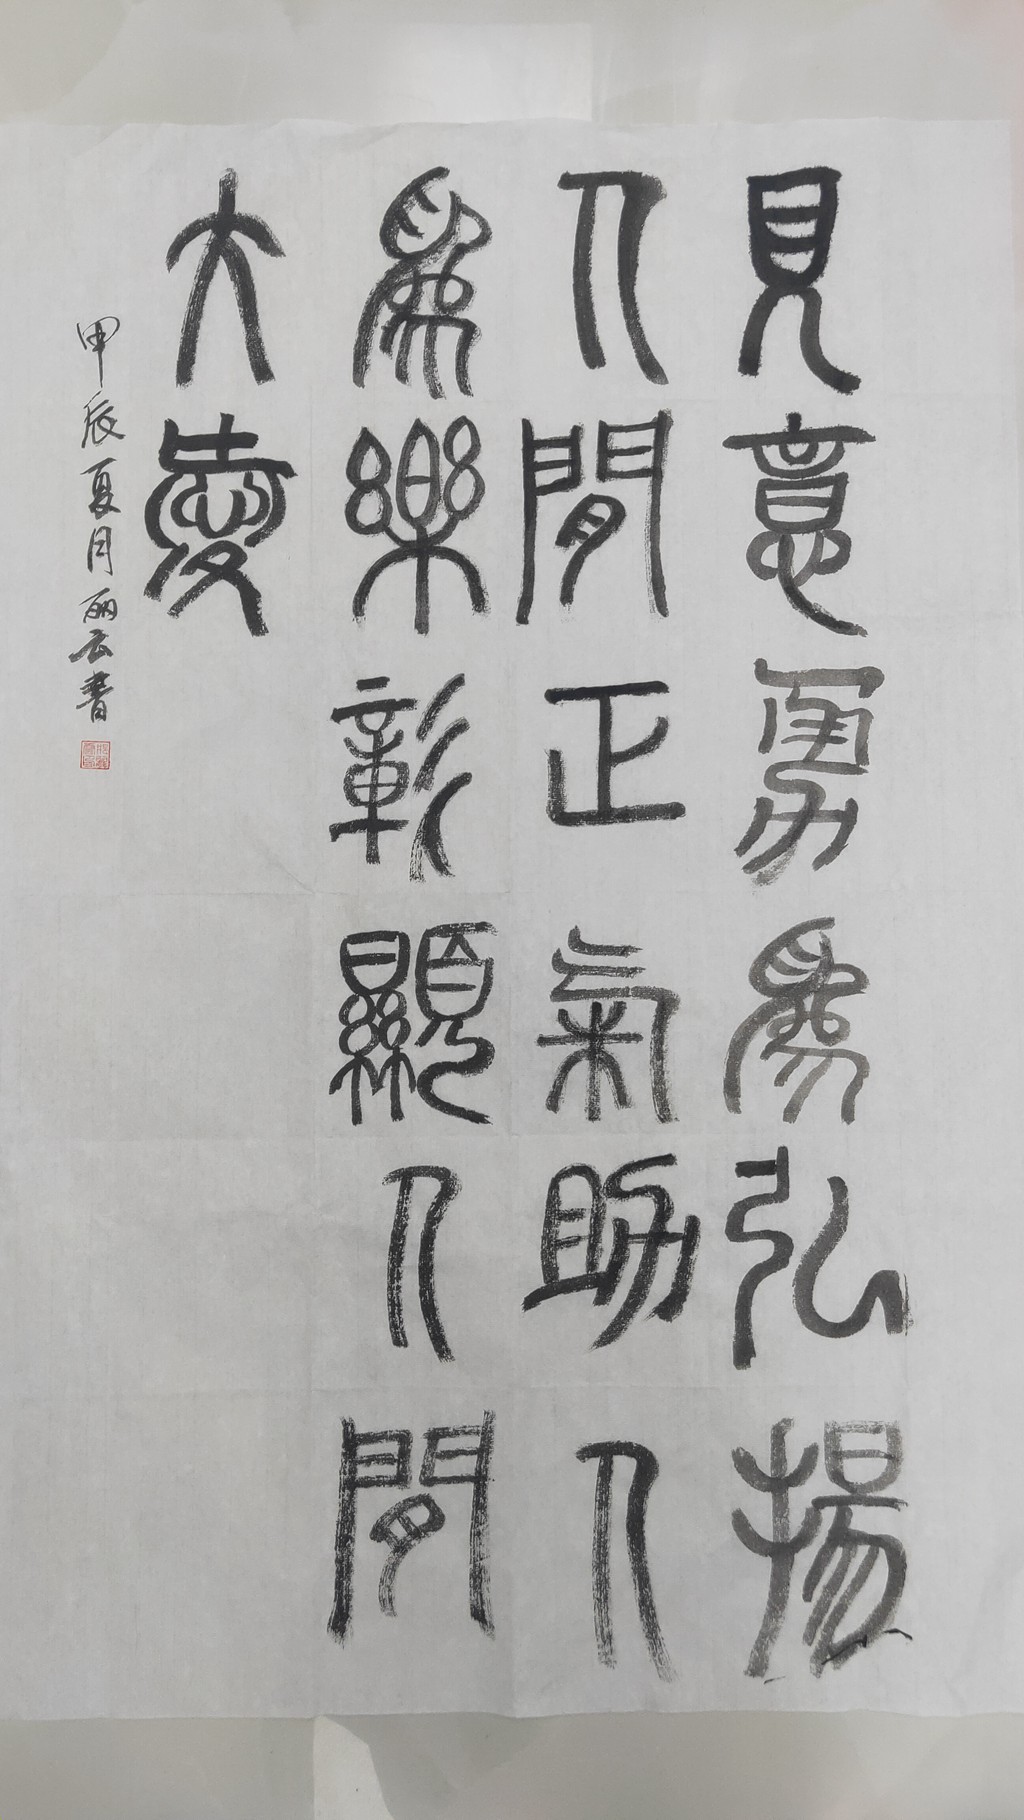 見意勇為弘揚
人間正氣助人
為樂彰顯人間
大愛
甲辰夏月丽云書